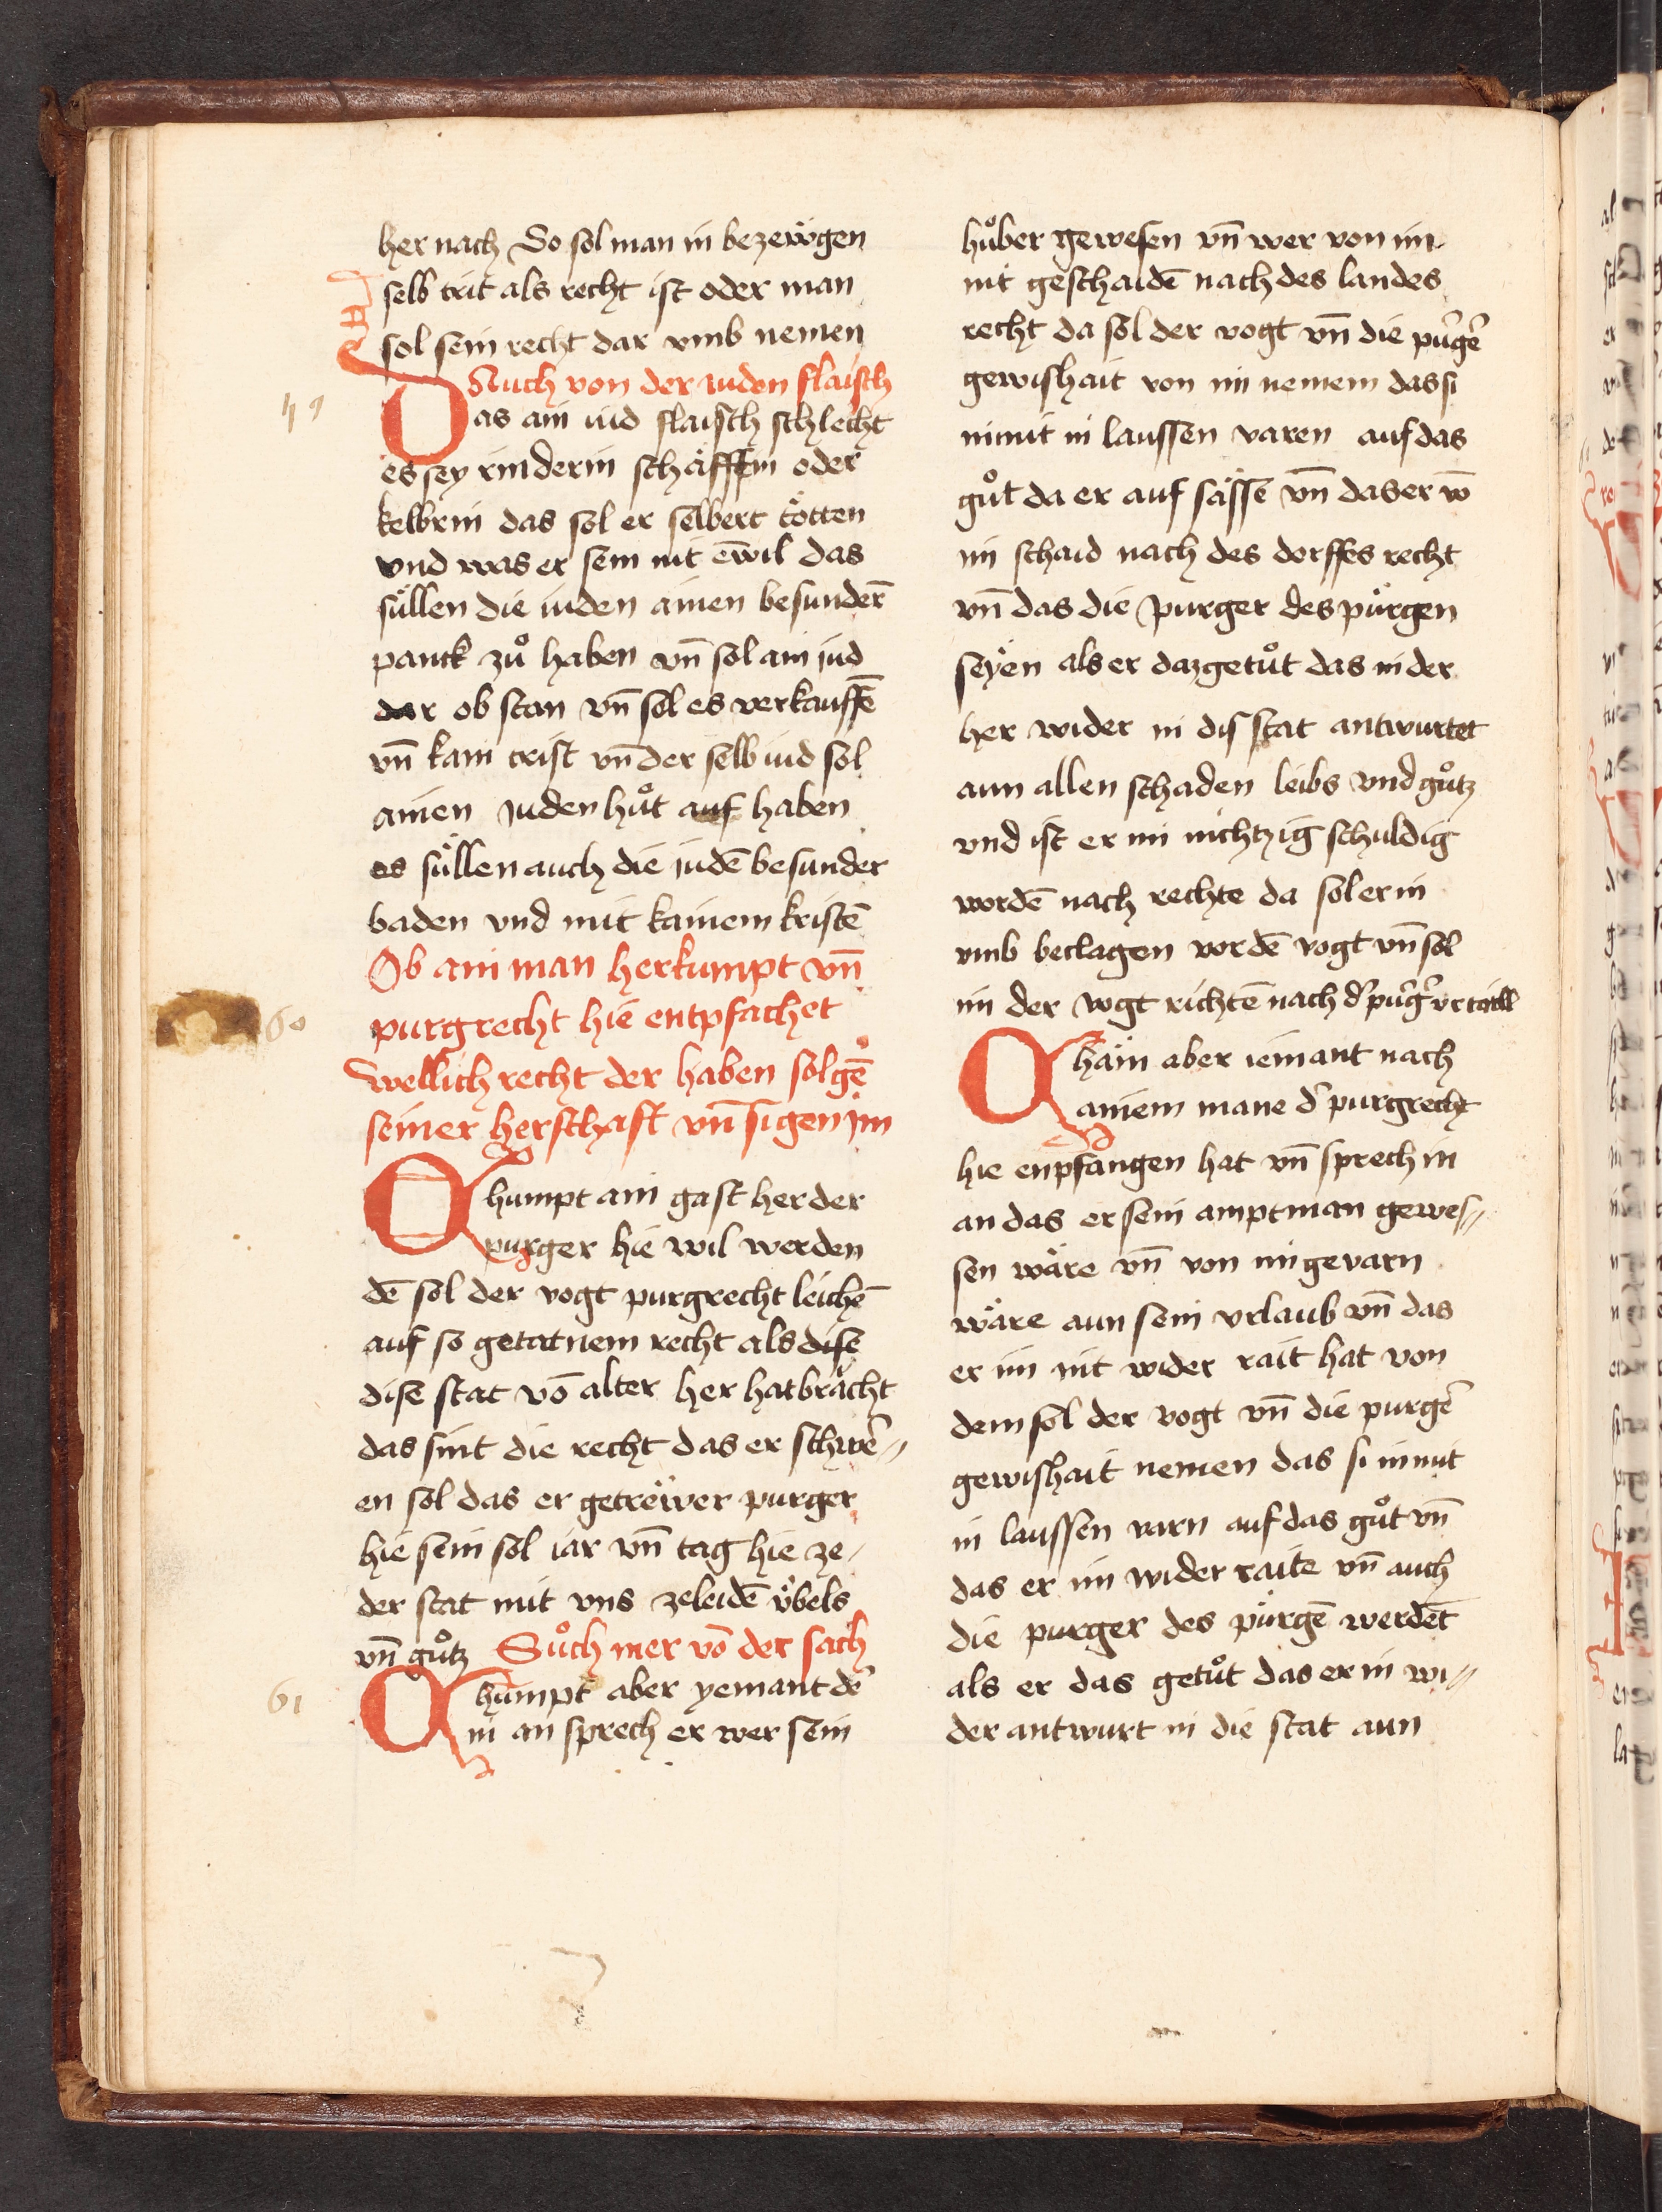 her nach So sol man in bezewͤgen
selb trit als recht ist oder man
sol sein recht dar vmb nemen
Auch von der iuden flaisch
59
Das ain iud flaisch schlecht
es sey rinderin schäffin oder
kelbrin das sol er selbert tötten
vnd was er sein nit ēwil das
süllen die iuden ainen besunderē
panck zuͦ haben vn̄ sol ain jud
dar ob stan vn̄ sol es verkauffē
vn̄ kain crist vn̄ der selb iud sol
ainen juden huͦt auf haben
es süllen auch die judē besunder
baden vnd mit kainem kristē
Ob ain man herkumpt vn̄
purgrecht hie entpfachet
60
wellich recht der haben sol gē
seiner herschaft vn̄ sigen im
Chumpt ain gast her der
purger hie wil werden
dē sol der vogt purgrecht leichē
auf so getatnem recht als dise
dise stat vō alter her hat brächt
das sint die recht das er schwer⸗
en sol das er getrewͤer purger
hie sein sol iar vn̄ tag hie ze
der stat mit vns zeleidē vͤbels
vn̄ guͦtz Suͦch mer vō der sach
61
Chumpt aber yemant der
in an sprech er wer sein
huͦber gewesen vn̄ wer von im
nit geschaidē nach des landes
recht da sol der vogt vn̄ die purger
gewishait von im nemem das si
in mit in laussen varen auf das
guͦt da er auf sässe vn̄ das er vō
im schaid nach des dorffes recht
vn̄ das die purger des pürgen
seyen als er daz getuͦt das in der
her wider in dis stat antwurtet
aun allen schaden leibs vnd guͦtz
vnd ist er im nichtzig schuldig
wordē nach rechte da sol er in
vmb beclagen vor dē vogt vn̄ sol
im der vogt richtē nach dʼ purgʼ vrtaill
Chäm aber iemant nach
ainem mane dʼ purgrecht
hie enpfangen hat vn̄ sprech in
an das er sein amptman gewes⸗
sen wäre vn̄ von im gevarn
wäre aun sein vrlaub vn̄ das
er im nit wider rait hat von
dem sol der vogt vn̄ die purger
gewishait nemen das si in mit
in laussen varn auf das guͦt vn̄
das er im wider raite vn̄ auch
die purger des pürgē werdēt
als er das getuͦt das er in wi⸗
der antwurt in die stat aun